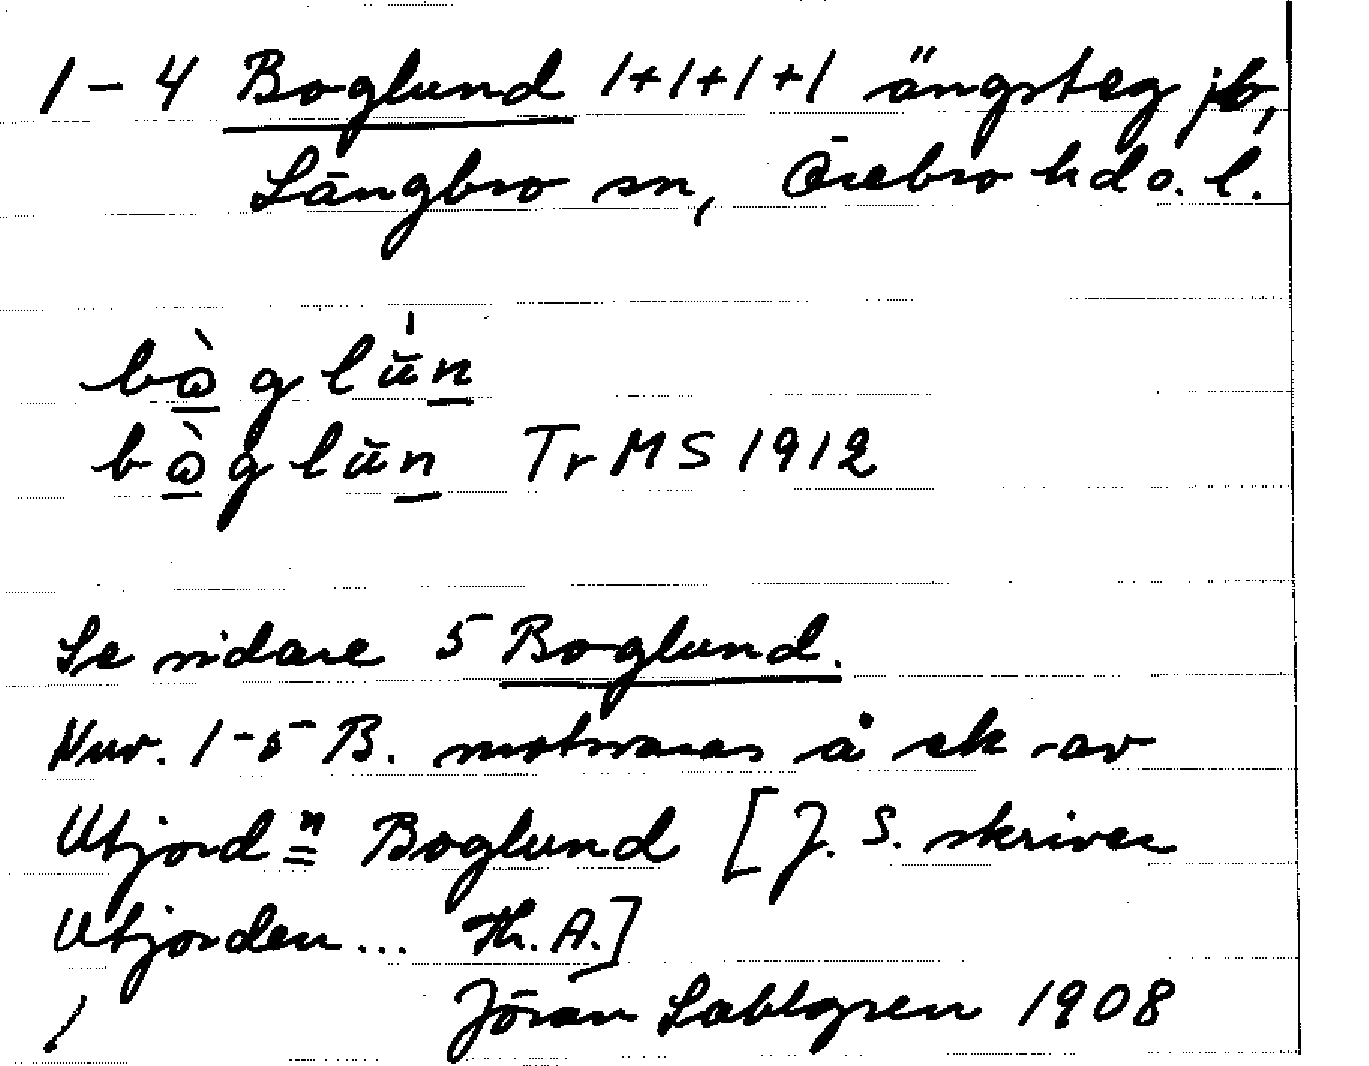 1-4 Boglund 1+1+1+1 ängsteg jb,
Längbro sn, Örebro hd o. l.
bò̲glŭ̍n̲
bò̲glŭn̲ Tr MS 1912
Se vidare 5 Boglund.
Nuv. 1-5 B. motsvaras å ek av
Utjordⁿ= Boglund [J. S. skriver
Utjorden... Th. A.]
Jöran Sahlgren 1908